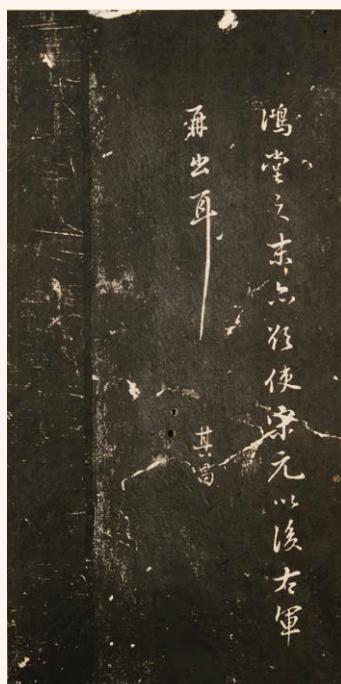 鴻堂之末亦欲使宋元以後右軍
再出耳
其昌